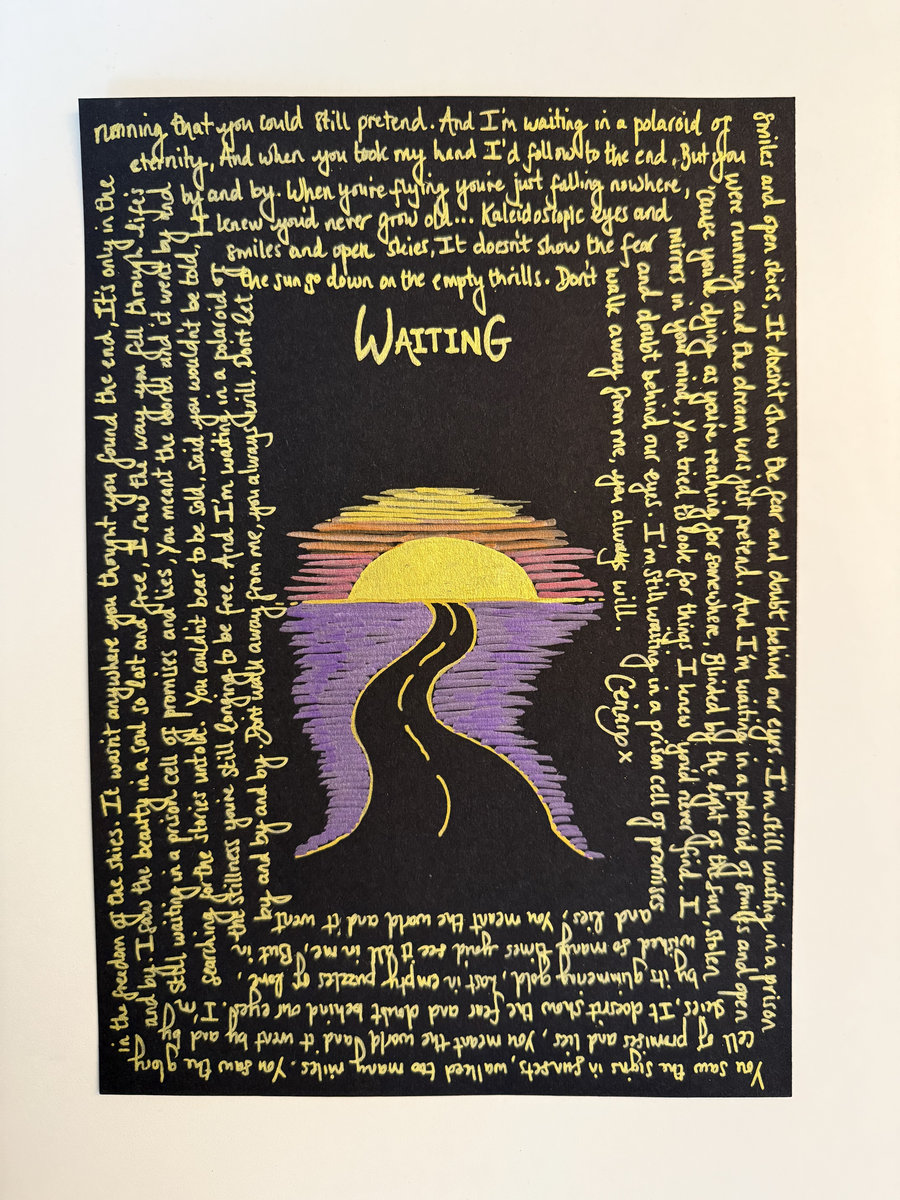 WAITING
You saw the signs in sunsets, walked too many miles. You saw the glory
in the freedom of the skies. It wasn't anywhere you thought you found the end, It's only in the
running that you could still pretend. And I'm waiting in a polaroid of
smiles and open skies, It doesn't show the fear and doubt behind our eyes. I'm still waiting in a prison
cell of promises and lies, You meant the world and it went by and
and by. I saw the beauty in a soul so lost and free, I saw the way you fall through life's
eternity, And when you took my hand I'd follow to the end, But you
were running and the dream was just pretend. And I'm waiting in a polaroid of smiles and open
skies, It doesn't show the fear and doubt behind our eyes, I'm
still waiting in a prison cell of promises and lies, You meant the world and it went by and
by and by. When you're flying you're just falling nowhere,
'cause you're dying as you're reaching for somewhere. Blinded by the light of the sun, stolen
by its glimmering gold, Lost in empty puzzles of love.
searching for the stories untold. You couldn't bear to be sold, said you wouldn't be told, I
knew you'd never grow old... Kaleidoscopic eyes and
mirrors in your mind, You tried to look for things I knew you'd never find. I
wished so many times you'd see it all in me, But in
the stillness you're still longing to be free. And I'm waiting in a polaroid of
smiles and open skies, It doesn't show the fear
and doubt behind our eyes. I'm still waiting in a prison cell of promises
and lies, You meant the world and it went
by and by and by. Don't walk away from me, you always will, Don't let
the sun go down on the empty thrills. Don't
walk away from me, you always will.